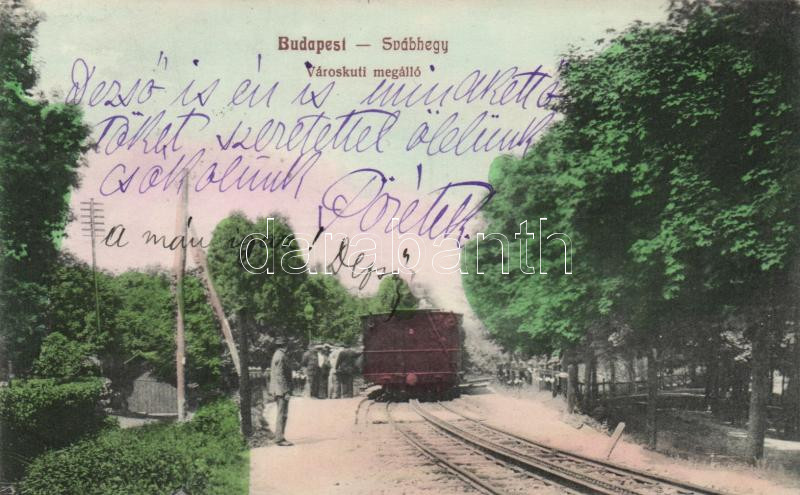 Budapest — Svábhegy
Városkuti megálló
Dezső is én is mindkettő
tőket szeretettel ölelünk
csókolunk
a má
Dezső
darabanth